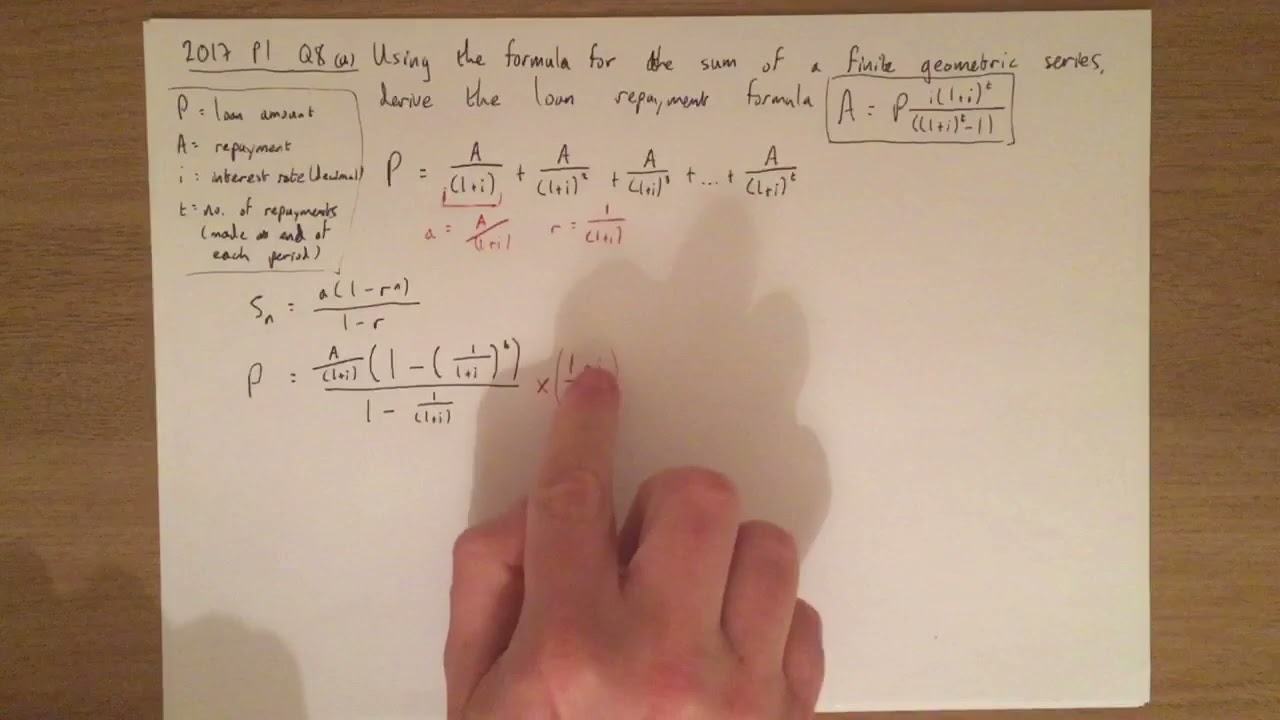 2017 P1 Q8 (a) Using the formula for the sum of a finite geometric series,
derive the loan repayment formula A = P i(1+i)^t / ((1+i)^t - 1)
P = loan amount
A = repayment
i = interest rate (decimal)
t = no. of repayments
(made at end of
each period)
P = A/(1+i) + A/(1+i)^2 + A/(1+i)^3 + ... + A/(1+i)^t
a = A/(1+i) r = 1/(1+i)
Sn = a(1-r^n) / 1-r
P = A/(1+i) (1 - (1/1+i)^t) / 1 - 1/(1+i) × (